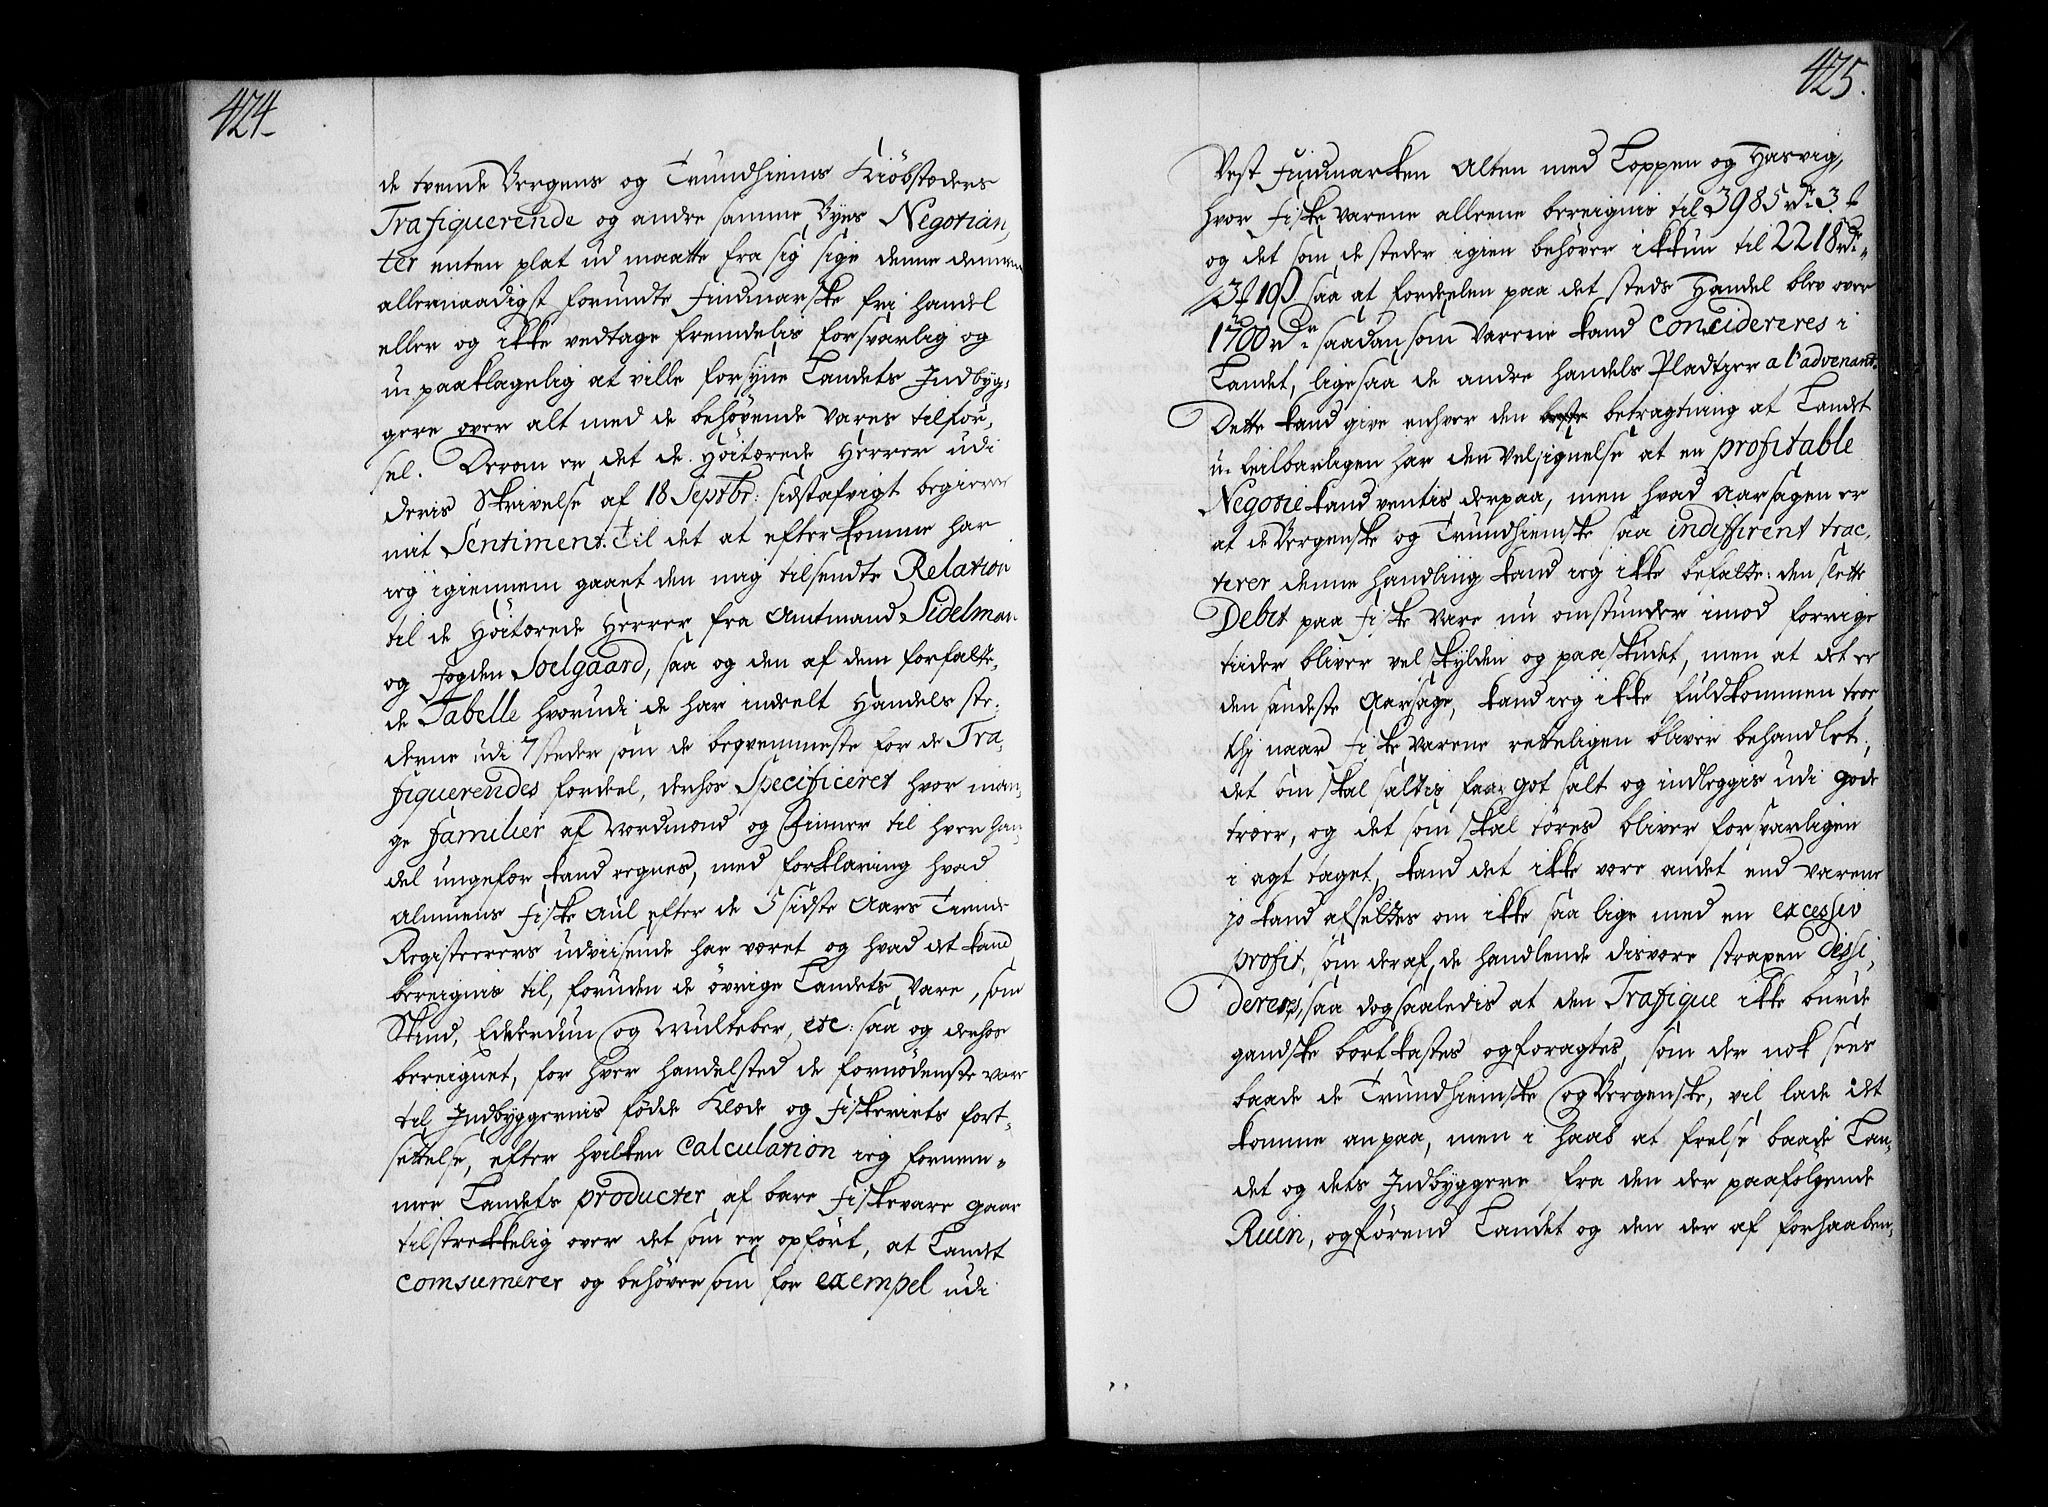 424
de tvende Bergens og Trundhiems Kiöbstæders
Trafiquerende og andre samme Byes Negotian,
ter enten plat ud maatte fra sig sige denne dennem
allernaadigst forundte Findmarske fri handel
eller og ikke vedtage fremdelis forsvarlig og
u-paaklagelig at ville forsyne Landets Indbyg,
gere over alt med de behøvende Vares tilfør,
sel. Derom er det de Höitærede Herrer udi
deris Skrivelse af 18 Septbr: sidstafvigt begierer
mit Sentiment. Til det at efterkomme har
ieg igiennem gaaet den mig tilsendte Relation
til de Höitærede Herrer fra Amtmand Sidelman
og Fogden Soelgaard, saa og den af dem forfatte-
de Tabelle hvorudi de har indeelt Handels ste-
derne udi 7 steder som de beqvemmeste for de Tra-
fiquerendes fordeel, derhos Specificeret hvor man-
ge familier af Nordmænd og Finner til hver han-
del ungefær kand regnes, med forklaring hvad
Almuens fiske Aul efter de 5 sidste Aars Tiende
Registerers udviisende har været og hvad det kand
bereignis til, foruden de övrige Landets Vare, som
Skind, Edderdun og Multeber, etc: saa og derhos
bereignet, for hver handelsted de fornödenste vare
til Indbyggernis føde Klæde og fiskeriets fort-
settelse, efter hvilken Calculation ieg fornem-
mer Landets producter af bare fiskevare gaar
tilstrekkelig over det som er opfört, at Landet
Comsumerer og behøver som for exempel udi
425.
Vest Findmarken Alten med Loppen og Hasvig,
hvor fiske varene alleene bereignis til 3985 rdr. 3 ß
og det som de steder igien behöver ikkun til 2218 rdr.
3 ß 19 saa at fordeelen paa det steds Handel blev over
1700 rdr saadan som Varene kand Considereres i
Landet, ligesaa de andre handels Pladtzer a l'advenant.
Dette kand give enhver den betragtning at Landet
u-feilbarligen har den Velsignelse at en profitable
Negotie kand ventis derpaa, men hvad Aarsagen er
at de Bergenske og Trundhiemske saa indifferent trac,
terer denne handling kand ieg ikke befatte: den slette
Debit paa fiske Vare nu omstunder imod forrige
tiider bliver vel skylden og paaskudet, men at det er
den sandeste Aarsage, kand ieg ikke fuldkommen troe
thj naar fiske Varene retteligen bliver behandlet,
det om skal saltis faar got salt og indleggis udi gode
træer, og det som skal tøres bliver forsvarligen
i agt taget, kand det ikke være andet end Varene
jo kand afsettes om ikke saa lige med en excessiv
profit, om deraf de handlende disvære straxen dissi-
deres, saa dog saaledis at den Trafique ikke burde
gandske bortkastes og foragtes, som der nok sees
baade de Trundhiemske og Bergenske, vil lade det
komme an paa, men i haab at frelse baade Lan-
det og dets Indbyggere fra den der paafølgende
Ruin, og førend Landet og den der af forhaaben-